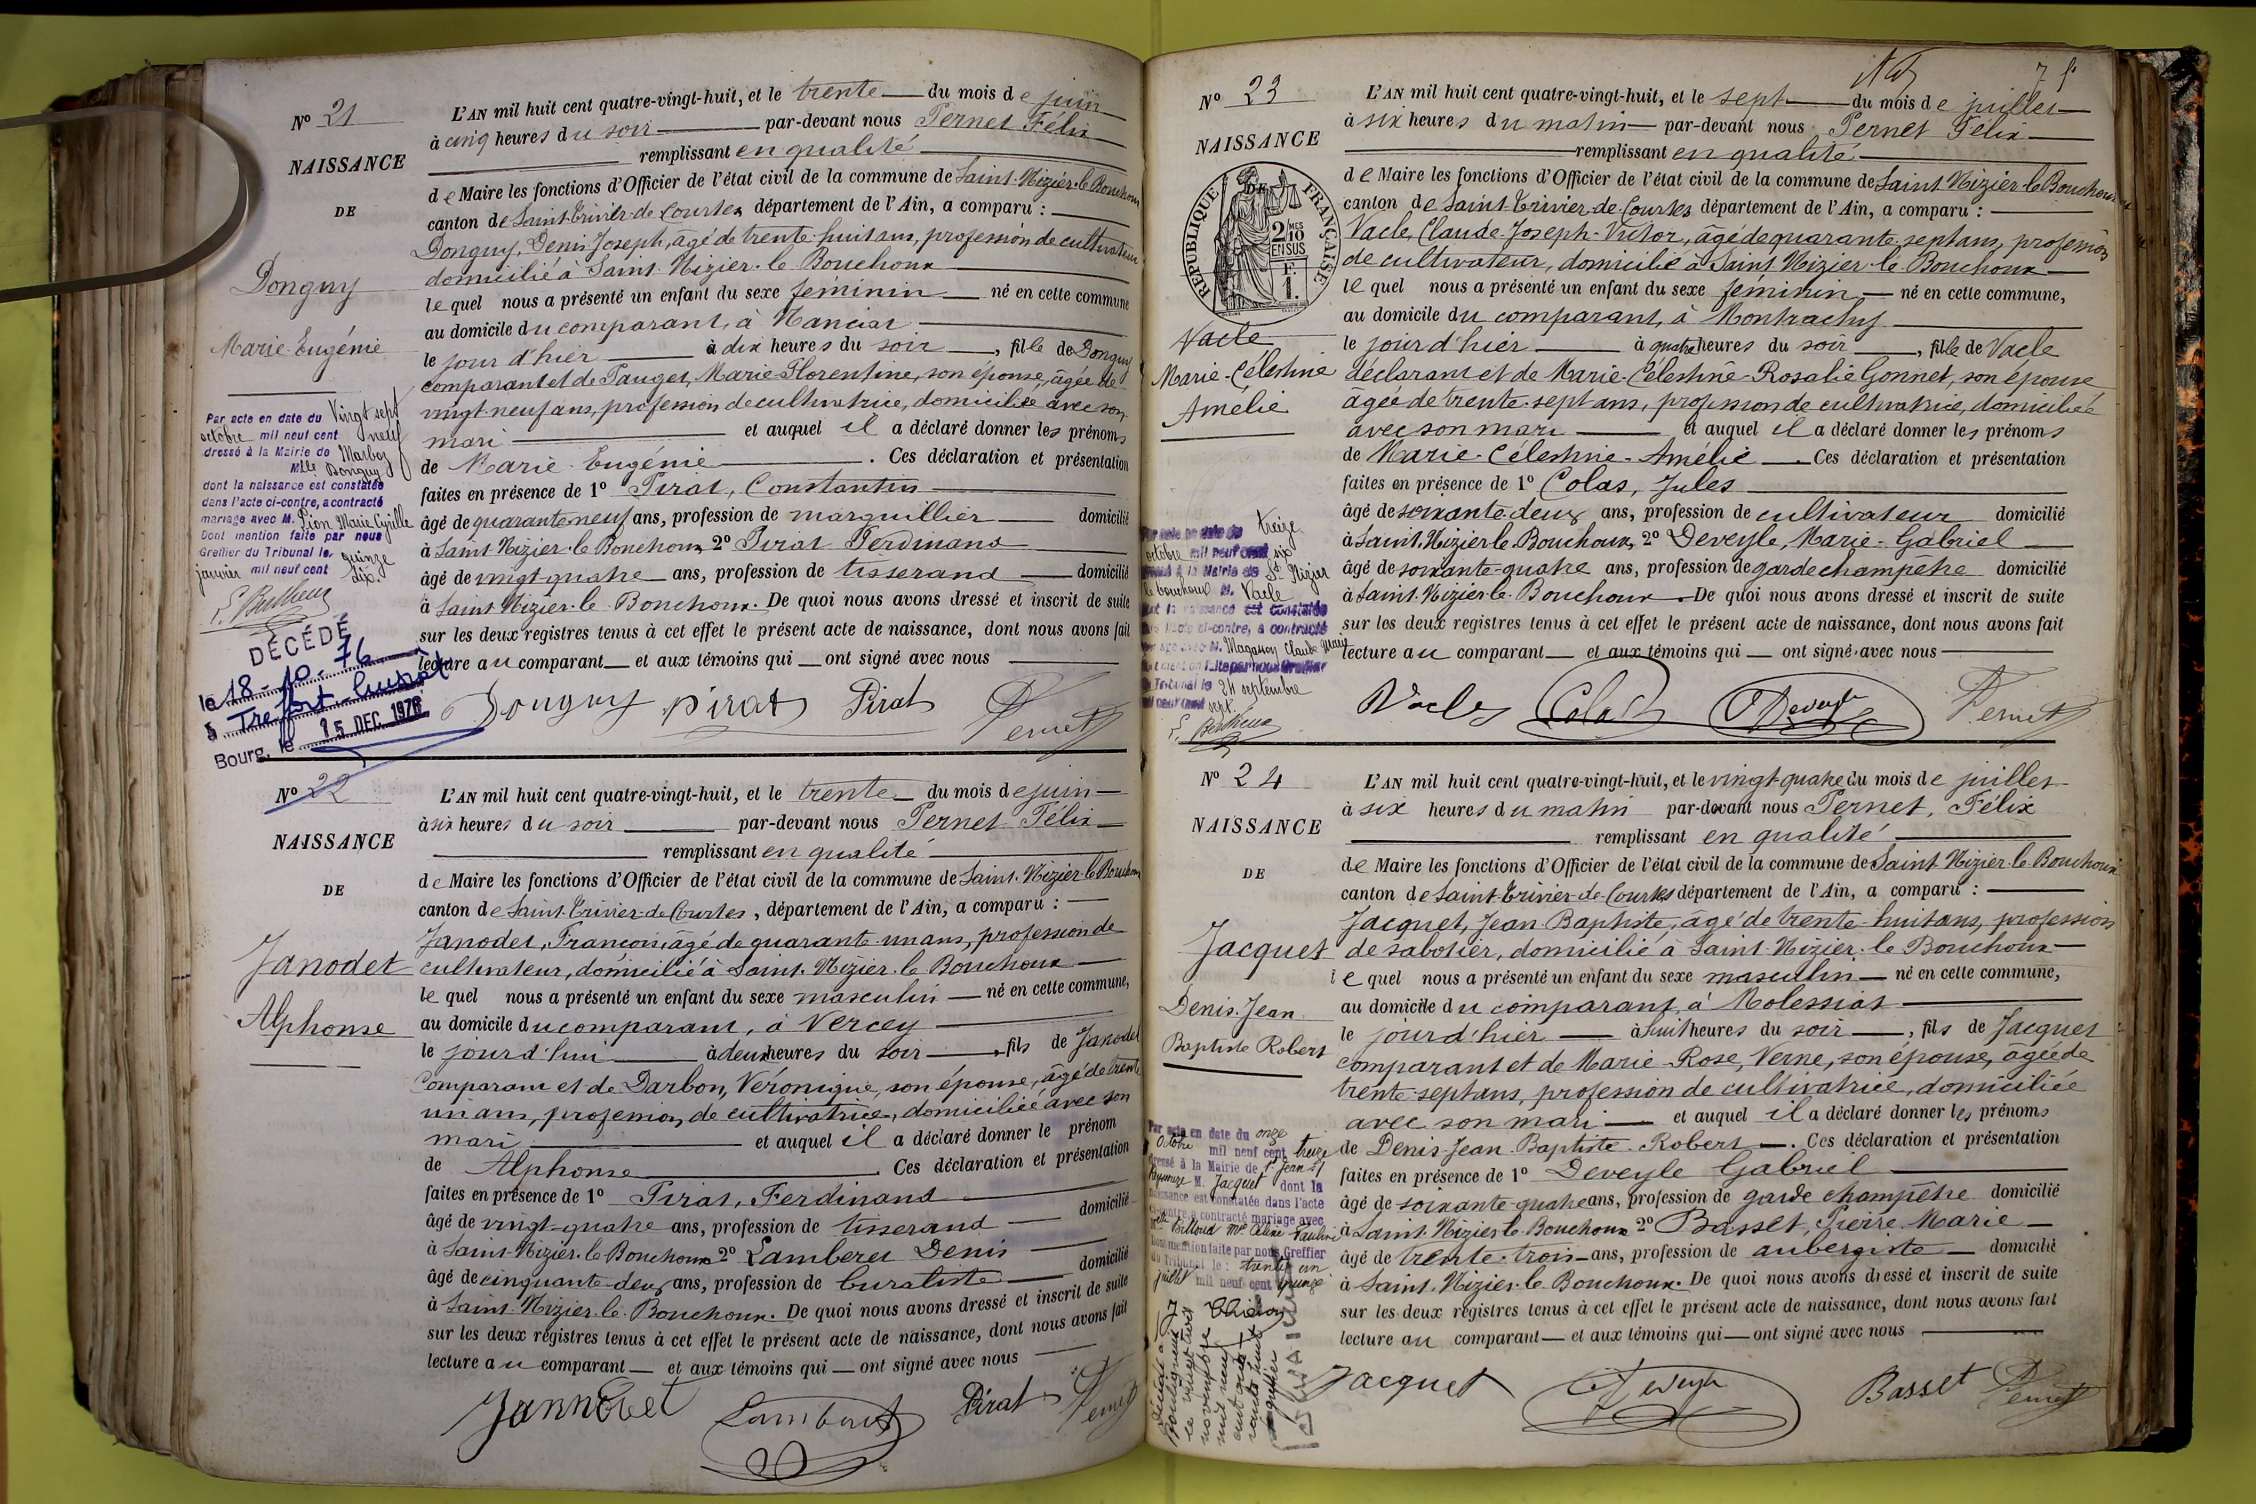 Nº 21
NAISSANCE
DE
Donguy
Marie-Eugénie
Par acte en date du Vingt sept
octobre mil neuf cent neuf
dressé à la Mairie de Marboz
Mlle Donguy
dont la naissance est constatée
dans l'acte ci-contre, a contracté
mariage avec M. Pion Marie Cyrille
Dont mention faite par nous
Greffier du Tribunal le quinze
janvier mil neuf cent dix.
DÉCÉDÉ
le 18-10-76
à Treffort-Cuisiat
Bourg, le 15 DEC 1976
L'AN mil huit cent quatre-vingt-huit, et le trente du mois de juin
à cinq heures du soir par-devant nous Pernet Félix
remplissant en qualité
de Maire les fonctions d'Officier de l'état civil de la commune de Saint-Nizier-le-Bouchoux
canton de Saint-Trivier-de-Courtes département de l'Ain, a comparu :
Donguy, Denis Joseph, âgé de trente-huit ans, profession de cultivateur
domicilié à Saint-Nizier-le-Bouchoux
le quel nous a présenté un enfant du sexe féminin né en cette commune
au domicile du comparant, à Nanciat
le jour d'hier à dix heures du soir, fille de Donguy
comparant et de Pauget, Marie-Florentine, son épouse, âgée de
vingt-neuf ans, profession de cultivatrice, domiciliée avec son
mari et auquel il a déclaré donner les prénoms
de Marie-Eugénie. Ces déclaration et présentation
faites en présence de 1º Pirat, Constantin
âgé de quarante-neuf ans, profession de marguillier domicilié
à Saint-Nizier-le-Bouchoux 2º Pirat Ferdinand
âgé de vingt-quatre ans, profession de tisserand domicilié
à Saint-Nizier-le-Bouchoux. De quoi nous avons dressé et inscrit de suite
sur les deux registres tenus à cet effet le présent acte de naissance, dont nous avons fait
lecture au comparant et aux témoins qui ont signé avec nous
Donguy Pirat Pirat Pernet
Nº 22
NAISSANCE
DE
Janodet
Alphonse
L'AN mil huit cent quatre-vingt-huit, et le trente du mois de juin
à six heures du soir par-devant nous Pernet Félix
remplissant en qualité
de Maire les fonctions d'Officier de l'état civil de la commune de Saint-Nizier-le-Bouchoux
canton de Saint-Trivier-de-Courtes, département de l'Ain, a comparu :
Janodet, François, âgé de quarante-un ans, profession de
cultivateur, domicilié à Saint-Nizier-le-Bouchoux
le quel nous a présenté un enfant du sexe masculin né en cette commune,
au domicile du comparant, à Vercey
le jourd'hui à deux heures du soir, fils de Janodet
comparant et de Darbon, Véronique, son épouse, âgé de trente
un ans, profession de cultivatrice, domiciliée avec son
mari et auquel il a déclaré donner le prénom
de Alphonse. Ces déclaration et présentation
faites en présence de 1º Pirat, Ferdinand
âgé de vingt-quatre ans, profession de tisserand domicilié
à Saint-Nizier-le-Bouchoux 2º Lamberet Denis
âgé de cinquante-deux ans, profession de buraliste domicilié
à Saint-Nizier-le-Bouchoux. De quoi nous avons dressé et inscrit de suite
sur les deux registres tenus à cet effet le présent acte de naissance, dont nous avons fait
lecture au comparant et aux témoins qui ont signé avec nous
Lamberet Pirat Pernet
Nº 23
NAISSANCE
DE
RÉPUBLIQUE FRANÇAISE
2/10 EN SUS
F. 1.
Vacle
Marie-Célestine
Amélie
Par acte en date du treize
octobre mil neuf cent six
dressé à la Mairie de St Nizier
le bouchoux M. Vacle
dont la naissance est constatée
dans l'acte ci-contre, a contracté
mariage avec M. Magasson Claude Marie
Dont mention faite par nous Greffier
du Tribunal le 24 septembre
mil neuf cent sept.
75
L'AN mil huit cent quatre-vingt-huit, et le sept du mois de juillet
à six heures du matin par-devant nous Pernet Félix
remplissant en qualité
de Maire les fonctions d'Officier de l'état civil de la commune de Saint-Nizier-le-Bouchoux
canton de Saint-Trivier-de-Courtes département de l'Ain, a comparu :
Vacle, Claude-Joseph-Victor, âgé de quarante-sept ans, profession
de cultivateur, domicilié à Saint-Nizier-le-Bouchoux
le quel nous a présenté un enfant du sexe féminin né en cette commune,
au domicile du comparant, à Montrachy
le jour d'hier à quatre heures du soir, fille de Vacle
déclarant et de Marie-Célestine-Rosalie Gonnet, son épouse
âgée de trente-sept ans, profession de cultivatrice, domiciliée
avec son mari et auquel il a déclaré donner les prénoms
de Marie-Célestine-Amélie. Ces déclaration et présentation
faites en présence de 1º Colas, Jules
âgé de soixante-deux ans, profession de cultivateur domicilié
à Saint-Nizier-le-Bouchoux, 2º Deveyle, Marie-Gabriel
âgé de soixante-quatre ans, profession de garde champêtre domicilié
à Saint-Nizier-le-Bouchoux. De quoi nous avons dressé et inscrit de suite
sur les deux registres tenus à cet effet le présent acte de naissance, dont nous avons fait
lecture au comparant et aux témoins qui ont signé avec nous
Vacle Colas Deveyle Pernet
Nº 24
NAISSANCE
DE
Jacquet
Denis-Jean
Baptiste Robert
Par acte en date du onze
octobre mil neuf cent treize
dressé à la Mairie de St Jean s/
Reyssouze M. Jacquet dont la
naissance est constatée dans l'acte
ci-contre a contracté mariage avec
Dont mention faite par nous Greffier
du Tribunal le: trente un
juillet mil neuf cent quinze
L'AN mil huit cent quatre-vingt-huit, et le vingt-quatre du mois de juillet
à six heures du matin par-devant nous Pernet, Félix
remplissant en qualité
de Maire les fonctions d'Officier de l'état civil de la commune de Saint-Nizier-le-Bouchoux
canton de Saint-Trivier-de-Courtes département de l'Ain, a comparu :
Jacquet, Jean-Baptiste, âgé de trente-huit ans, profession
de sabotier, domicilié à Saint-Nizier-le-Bouchoux
le quel nous a présenté un enfant du sexe masculin né en cette commune,
au domicile du comparant, à Molessiat
le jour d'hier à huit heures du soir, fils de Jacquet
comparant et de Marie-Rose, Verne, son épouse, âgée de
trente-sept ans, profession de cultivatrice, domiciliée
avec son mari et auquel il a déclaré donner les prénoms
de Denis-Jean-Baptiste-Robert. Ces déclaration et présentation
faites en présence de 1º Deveyle Gabriel
âgé de soixante-quatre ans, profession de garde champêtre domicilié
à Saint-Nizier-le-Bouchoux 2º Basset, Pierre-Marie
âgé de trente-trois ans, profession de aubergiste domicilié
à Saint-Nizier-le-Bouchoux. De quoi nous avons dressé et inscrit de suite
sur les deux registres tenus à cet effet le présent acte de naissance, dont nous avons fait
lecture au comparant et aux témoins qui ont signé avec nous
Jacquet Deveyle Basset Pernet